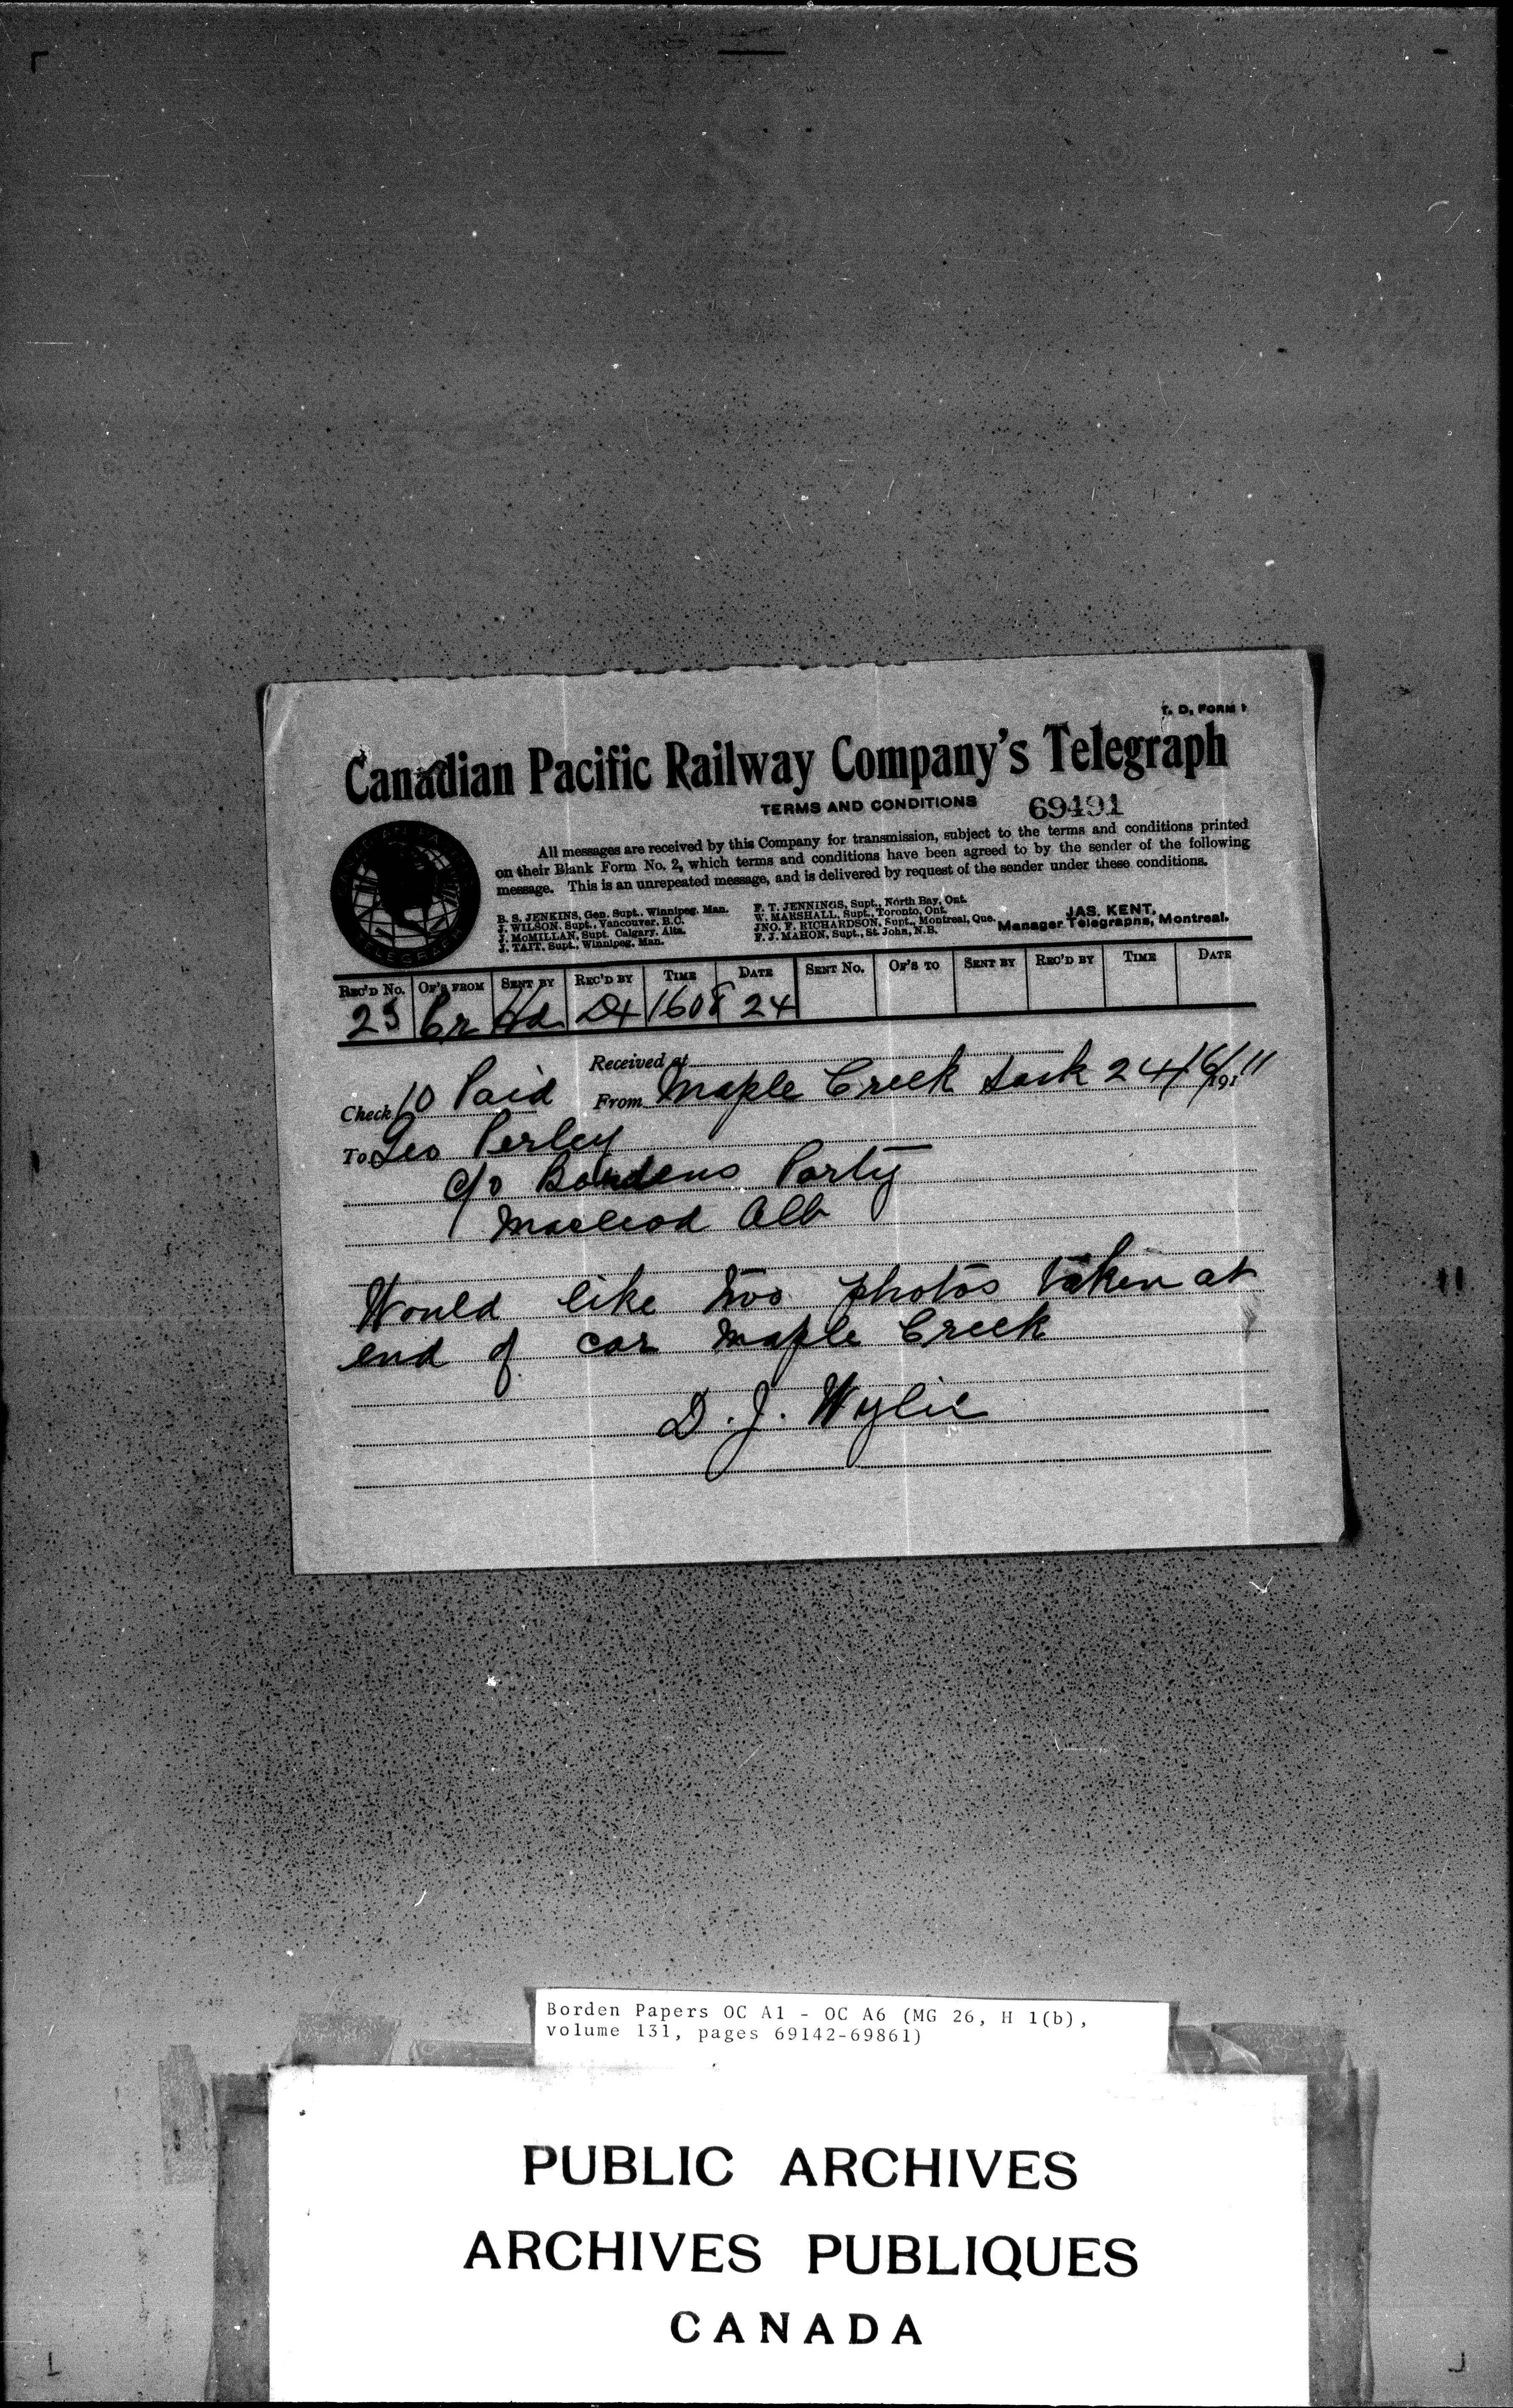 T. D. FORM 1
Canadian Pacific Railway Company's Telegraph
TERMS AND CONDITIONS
69491
All messages are received by this Company for transmission, subject to the terms and conditions printed
on their Blank Form No. 2, which terms and conditions have been agreed to by the sender of the following
message. This is an unrepeated message, and is delivered by request of the sender under these conditions.
B. S. JENKINS, Gen. Supt., Winnipeg, Man.
J. WILSON, Supt., Vancouver, B.C.
J. McMILLAN, Supt. Calgary, Alta.
J. TAIT, Supt., Winnipeg, Man.
F. T. JENNINGS, Supt., North Bay, Ont.
W. MARSHALL, Supt., Toronto, Ont.
JNO. F. RICHARDSON, Supt., Montreal, Que.
F. J. MAHON, Supt., St. John, N.B.
JAS. KENT,
Manager Telegraphs, Montreal.
TELEGRAPH
REC'D No. OF'S FROM SENT BY REC'D BY TIME DATE SENT No. OF'S TO SENT BY REC'D BY TIME DATE
1608 24
Received at
Check 10 Paid From Maple Creek Sask 24/6/1911
To Geo Perley
c/o Bordens Party
Macleod Alb
Would like two photos taken at
end of car Maple Creek
D. J. Wylie
Borden Papers OC A1 - OC A6 (MG 26, H 1(b),
volume 131, pages 69142-69861)
PUBLIC ARCHIVES
ARCHIVES PUBLIQUES
CANADA